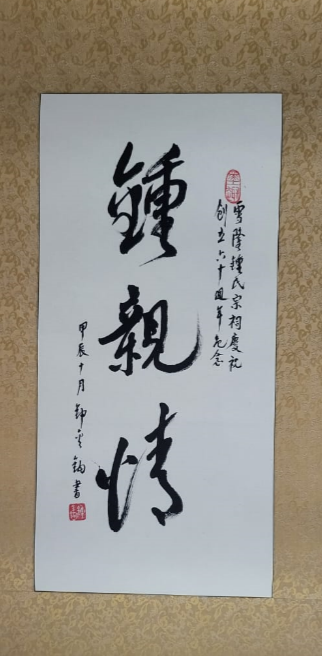 雪隆鍾氏宗祠慶祝
創立六十週年紀念
鍾
親
情
甲辰十月鍾
書